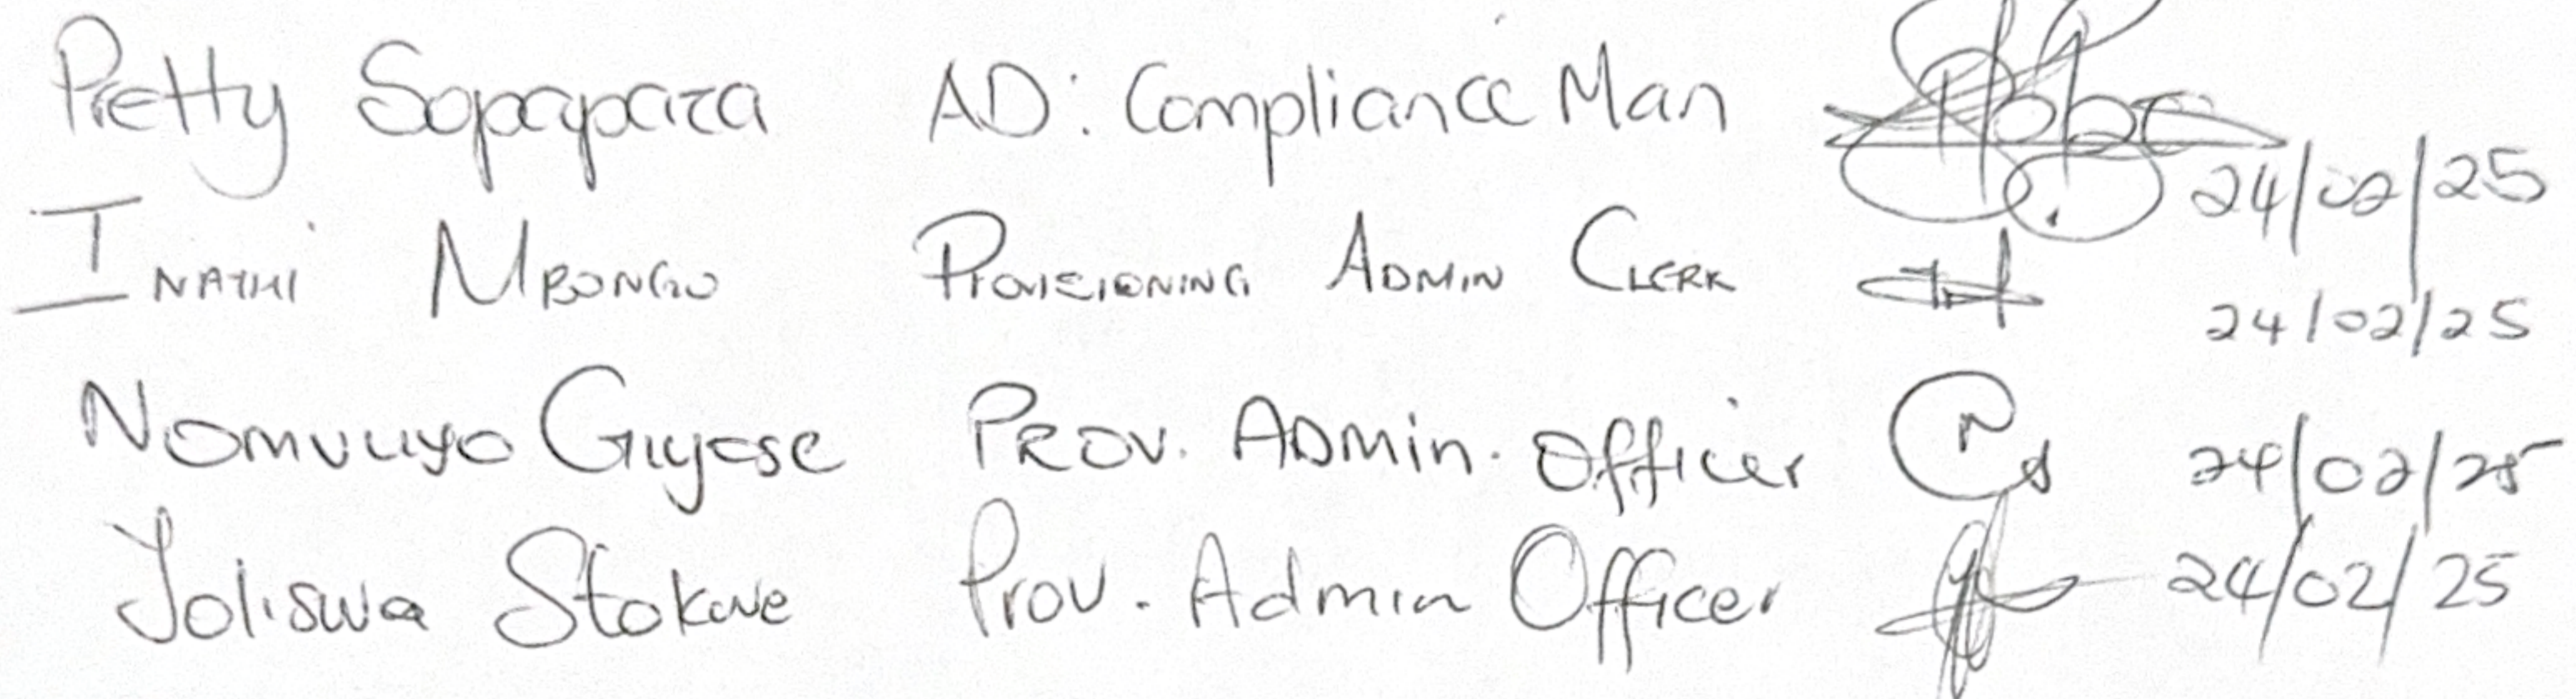 Pretty Sopapaza AD: Compliance Man 24/02/25
INATHI MBONGO PROVISIONING ADMIN CLERK 24/02/25
Nomvuyo Guyose PROV. ADMIN. Officer 24/02/25
Yoliswa Stokwe Prov. Admin Officer 24/02/25